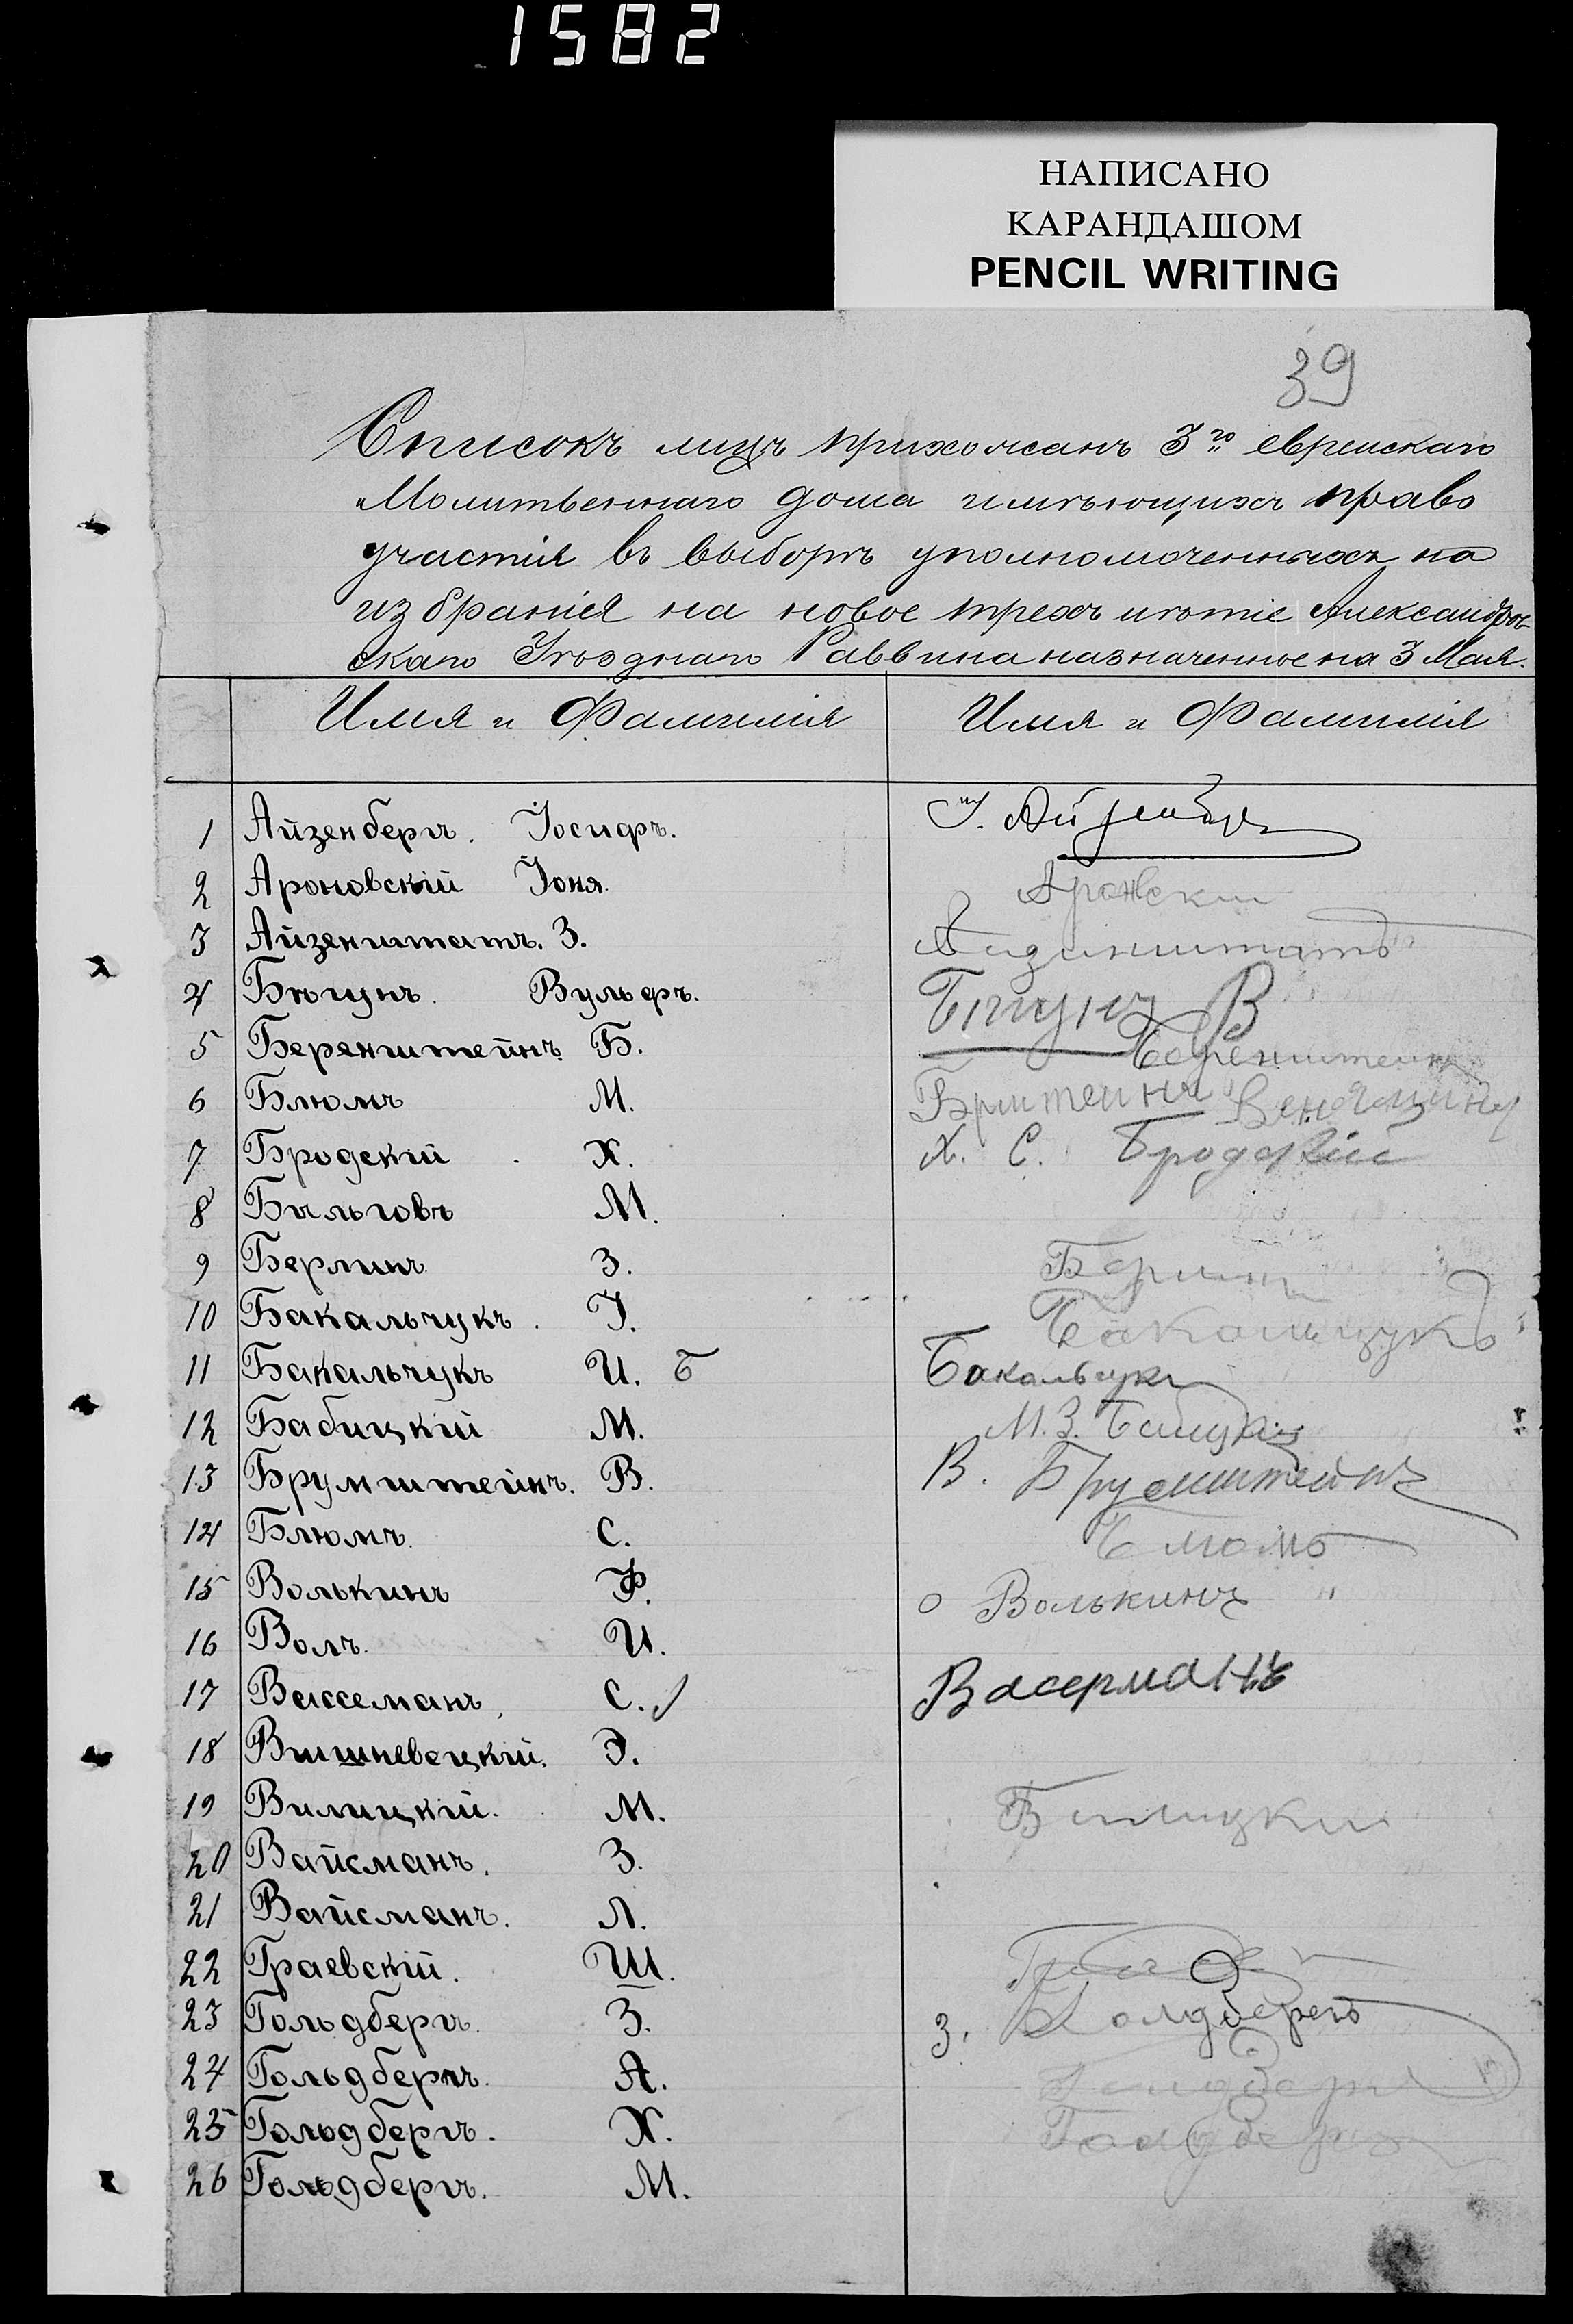 1582
НАПИСАНО
КАРАНДАШОМ
PENCIL WRITING
39
Списокъ лицъ прихожанъ 3го еврейскаго
Молитвеннаго дома имѣющихъ право
участія въ выборѣ уполномоченныхъ на
избранія на новое трехъ лѣтіе Александров-
скаго Уѣзднаго Раввина назначенное на 3 Мая.
Имя и Фамилія Имя и Фамилія
1 Айзенбергъ. Іосифъ. І. Айзенбергъ
2 Ароновскій Іоня. Аронвский
3 Айзенштатъ. З. Аизинштатъ
4 Бѣгунъ. Вульфъ. Бѣгунъ В
5 Беренштейнъ Б. Беренштеинъ
6 Блюмъ М. Брштеинъ Венеяминъ
7 Бродскій Х. Х. С. Бродскій
8 Бильговъ М.
9 Берлинъ З. Берлин
10 Бакальчукъ. І. Бакальчукъ
11 Бакальчукъ И. Б Бакальчукъ
12 Бабицкій М. М. З. Бабицкій
13 Брумштейнъ. В. В. Брумштейнъ
14 Блюмъ. С. Блюмъ
15 Волькинъ Ф. Волькинъ
16 Волъ. И.
17 Вассеманъ. С. Васерманъ
18 Вишневецкій. Э.
19 Вилицкій. М. Вилицкий
20 Вайсманъ. З.
21 Вайсманъ. Л.
22 Граевскій. Ш.
23 Гольдбергъ. З. З. Голдбергъ
24 Гольдбергъ. А. Голдбергъ
25 Гольдбергъ. Х. Голдбергъ
26 Гольдбергъ. М.